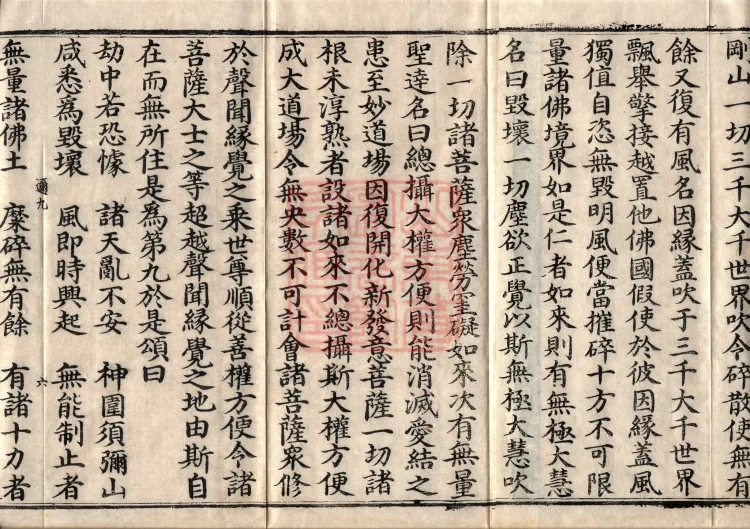 剛山一切三千大千世界吹令碎散使無有
餘又復有風名因緣蓋吹于三千大千世界
飄舉擎接越置他佛國假使於彼因緣蓋風
獨值自恣無毀明風便當摧碎十方不可限
量諸佛境界如是仁者如來則有無極大慧
名曰毀壞一切塵欲正覺以斯無極大慧吹
除一切諸菩薩衆塵勞罣礙如來次有無量
聖達名曰總攝大權方便則能消滅愛結之
患至妙道場因復開化新發意菩薩一切諸
根未淳熟者設諸如來不總攝斯大權方便
成大道場令無央數不可計會諸菩薩衆修
於聲聞緣覺之乘世尊順從善權方便令諸
菩薩大士之等超越聲聞緣覺之地由斯自
在而無所住是爲第九於是頌曰
劫中若恐懅 諸天亂不安 神圍須彌山
咸悉爲毀壞 風即時興起 無能制止者
邇九 六
無量諸佛土 糜碎無有餘 有諸十力者